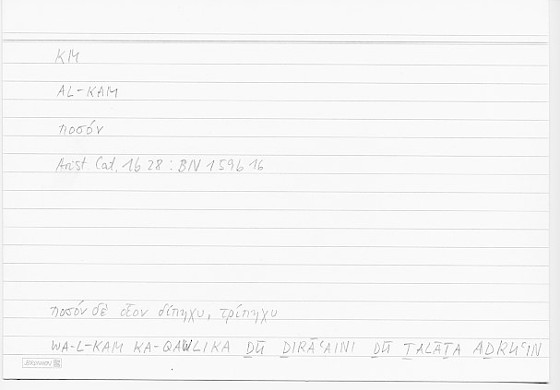 KM
AL-KAM
ποσόν
Arist. Cat. 1b 28 : BN 159b 16
ποσόν δὲ οἷον δίπηχυ, τρίπηχυ
WA-L-KAM KA-QAWLIKA ḎŪ ḎIRĀʿAINI ḎŪ ṮALĀṮA AḎRUʿIN